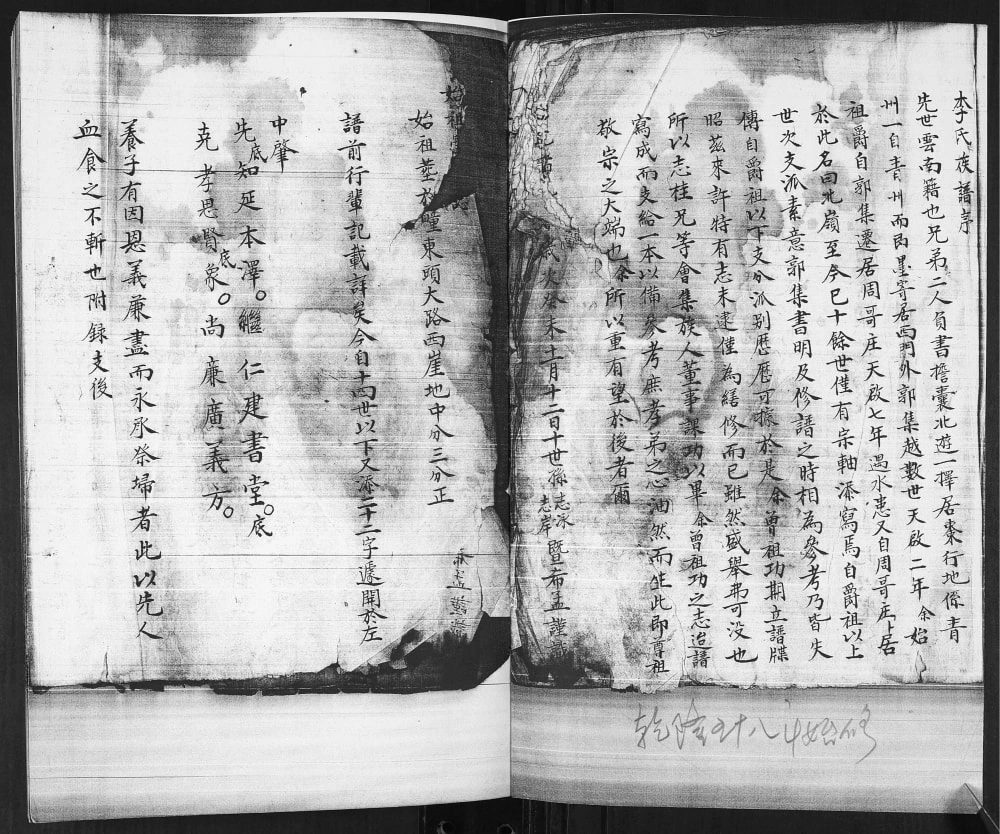 李氏族譜序
先世雲南籍也兄弟二人負書擔囊北遊一擇居棗行地係青
州一自青州而即墨寄居西門外郭集越數世天啟二年余始
祖爵自郭集遷居周哥庄天啟七年遇水患又自周哥庄卜居
於此名曰北嶺至今已十餘世僅有宗軸添寫焉自爵祖以上
世次支派素意郭集書明及修譜之時相為參考乃皆失
傳自爵祖以下支分派別歷歷可據於是余曾祖功期立譜牒
昭茲來許特有志未逮僅為繕修而已雖然盛舉弗可沒也
所以志桂兄等會集族人董事課功以畢余曾祖功之志迨譜
寫成而支給一本以備參考庶孝弟之心油然而生此即尊祖
敬宗之大端也余所以重有望於後者爾
歲次癸未十一月十二日十世孫志泳志岸暨布孟謹識
始祖塋
始祖塋於疃東頭大路西崖地中分三分正
譜前行輩記載詳矣今自十四世以下又添二十二字遞開於左
中肇
先底知延本澤。繼仁建書堂。底
克孝思賢底象。尚廉廣義方。
養子有因恩義兼盡而永承祭埽者此以先人
血食之不斬也附錄支後
乾隆五十八年始修